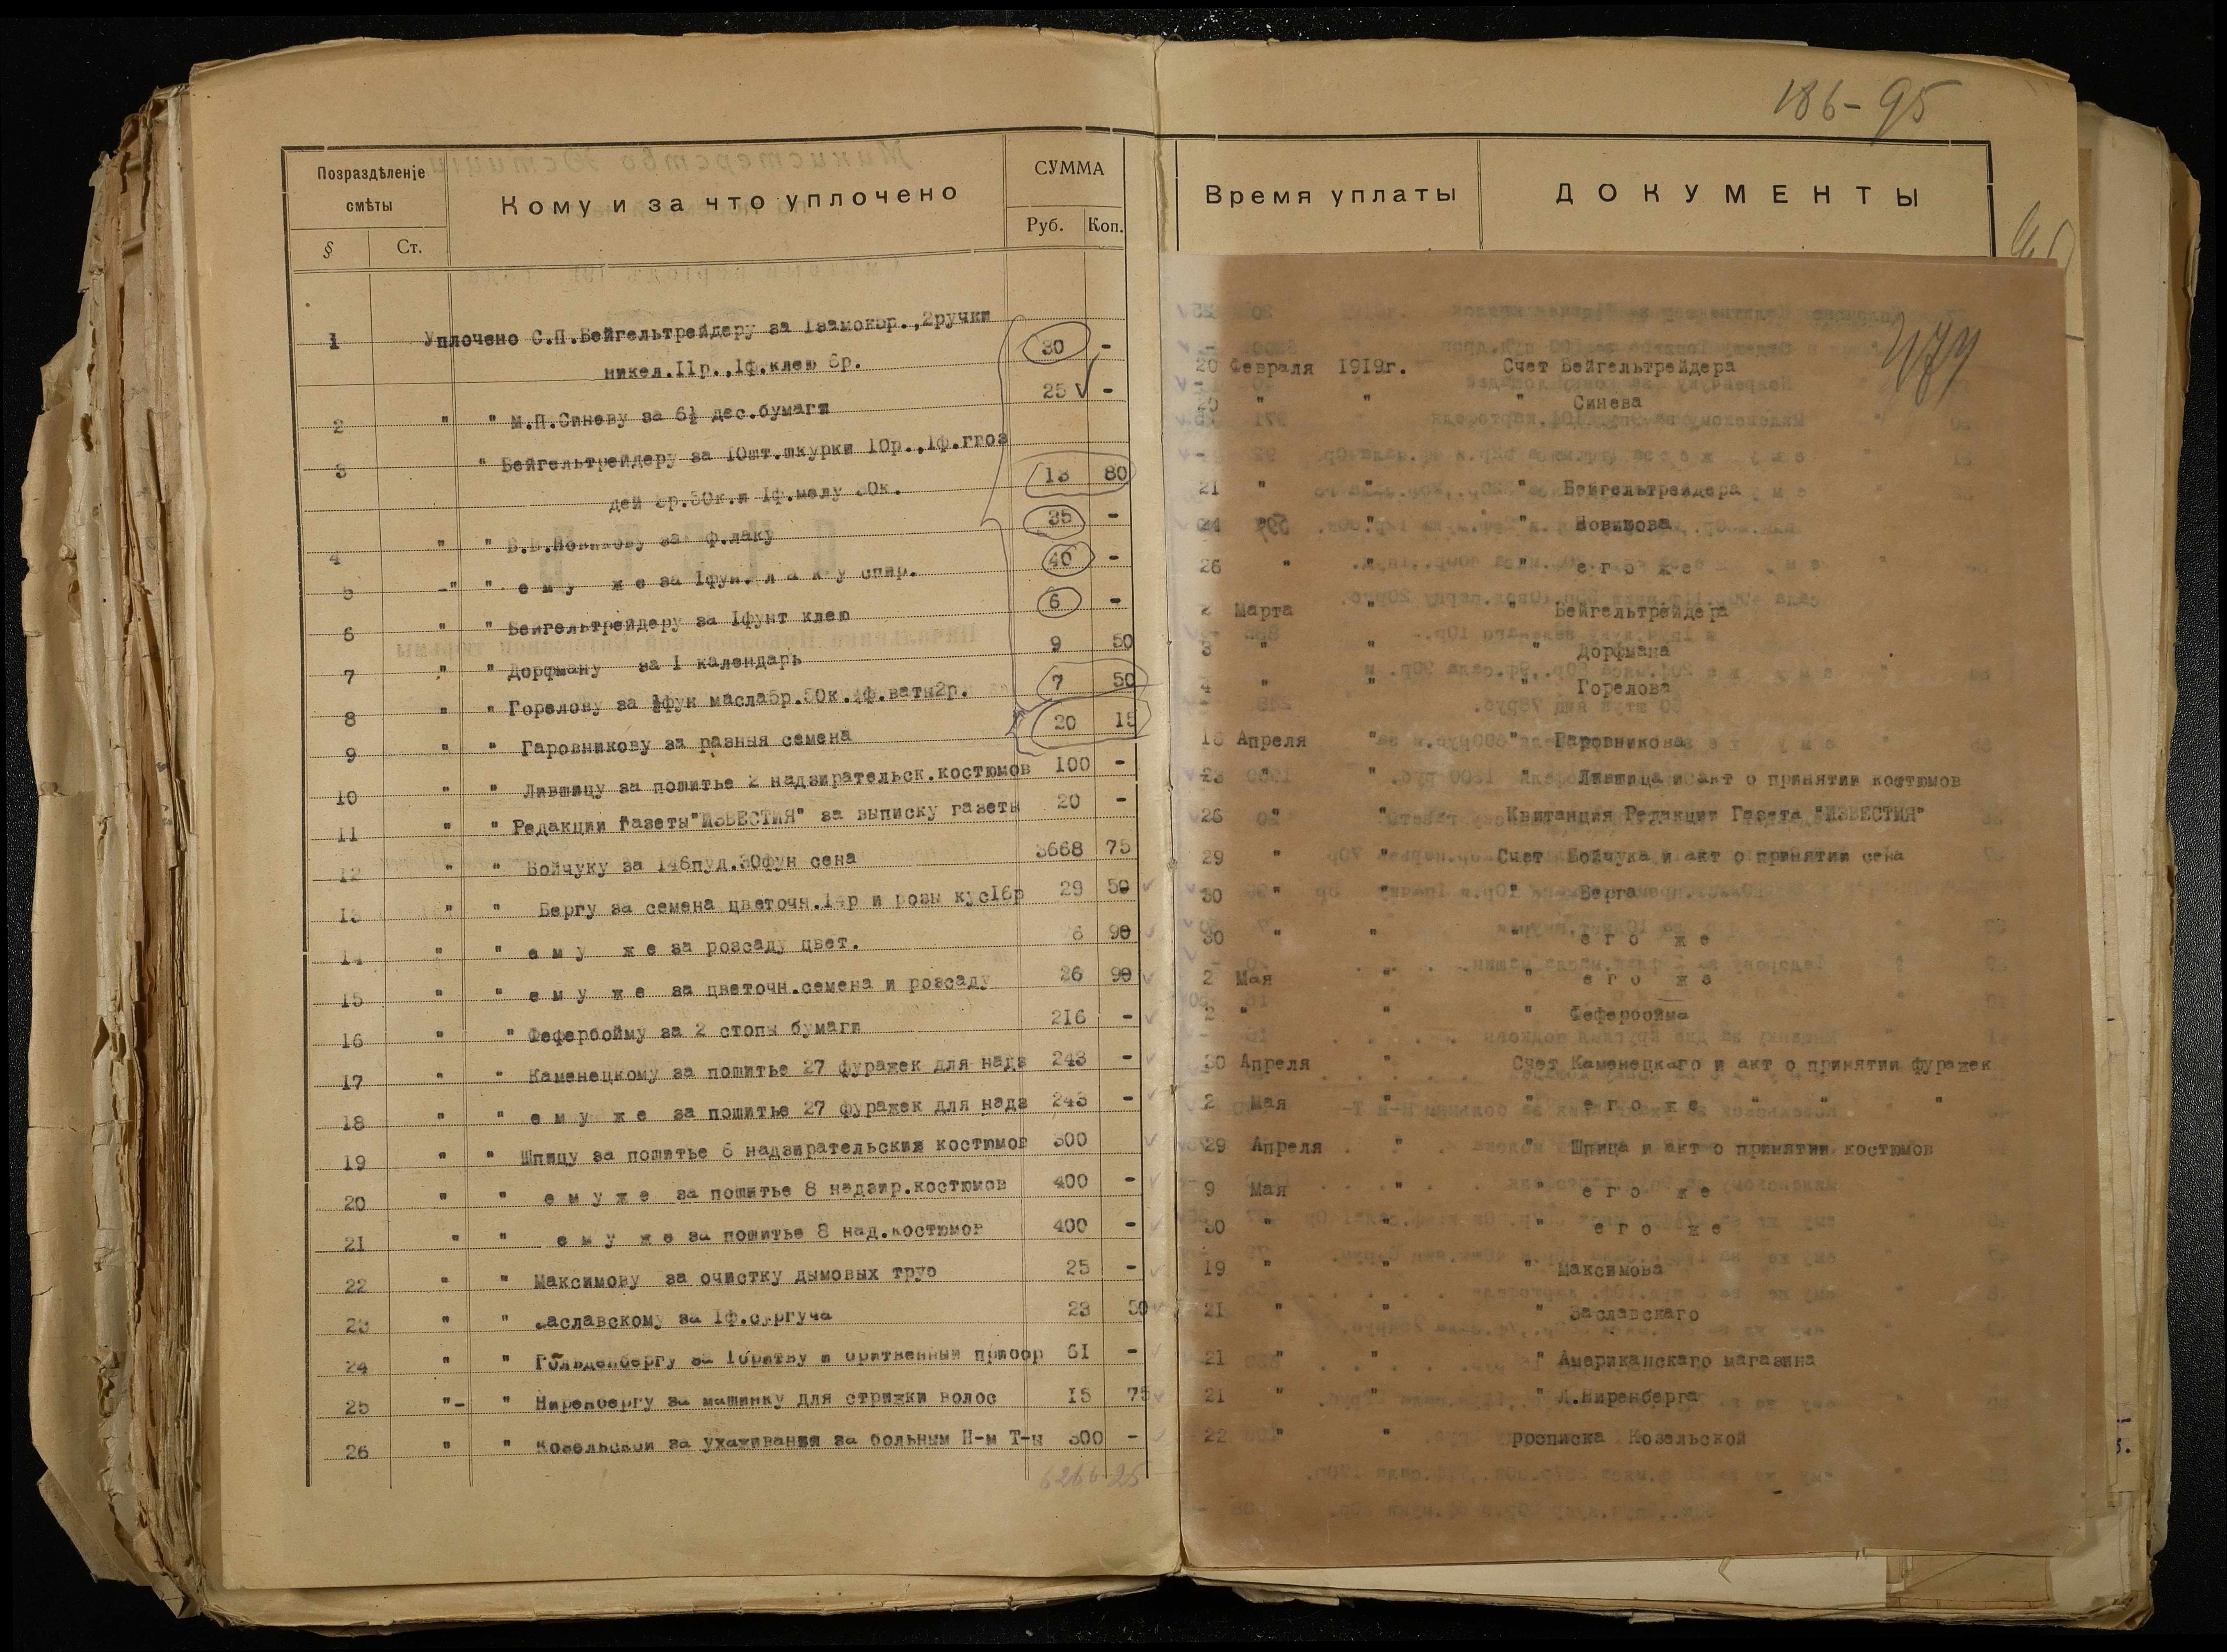 186-95
Позраздѣленіе смѣты
Кому и за что уплочено
СУММА
§ Ст.
Руб. Коп.
Время уплаты
ДОКУМЕНТЫ
479
1 Уплочено С.П.Бейгельтрейдеру за 1замок5р.,2ручки
никел.11р.,1ф.клею 6р. 30 -
2 " " М.П.Синеву за 6½ дес.бумаги 25 -
3 " Бейгельтрейдеру за 10шт.шкурки 10р.,1ф.гвоз
дей р.50к.и 1ф.мелу 30к. 13 80
4 " " Б.В.Новикову за ф.лаку 35 -
5 -" " ему же за 1фун. лаку спир. 40 -
6 " " Бейгельтрейдеру за 1фунт клею 6 -
7 " " Дорфману за 1 календарь 9 50
8 " " Горелову за ½фун масла5р.50к. ф.ваты2р. 7 50
9 " " Гаровникову за разныя семена 20 15
10 " " Лившицу за пошитье 2 надзирательск.костюмов 100 -
11 " " Редакции Газеты"ИЗВЕСТИЯ" за выписку газеты 20 -
12 " " Бойчуку за 146пуд.30фун сена 3668 75
13 " " Бергу за семена цветочн.14р и розы кус16р 29 50
14 " " ему же за розсаду цвет. 6 90
15 " " ему же за цветочн.семена и розсаду 26 90
16 " " Фефербойму за 2 стопы бумаги 216 -
17 " " Каменецкому за пошитье 27 фуражек для надз 243 -
18 " " ему же за пошитье 27 фуражек для надз 243 -
19 " " Шпицу за пошитье 6 надзирательских костюмов 300
20 " " ему же за пошитье 8 надзир.костюмов 400 -
21 " " ему же за пошитье 8 над.костюмов 400 -
22 " " Максимову за очистку дымовых труб 25 -
23 " " Заславскому за 1ф.сургуча 23 50
24 " " Гольденбергу за 1бритву и бритвенный прибор 61 -
25 "- " Ниренбергу за машинку для стрижки волос 15 75
26 " " Козельской за ухаживания за больным Н-м Т-ы 300 -
6266 25
20 Февраля 1919г. Счет Бейгельтрейдера
20 " " " Синева
21 " " " Бейгельтрейдера
24 " " Новикова
26 " " его же
2 Марта " " Бейгельтрейдера
3 " " " Дорфмана
4 " " " Горелова
16 Апреля " " Гаровникова
23 " " Лившица и акт о принятии костюмов
26 " " Квитанция Редакции Газета "ИЗВЕСТИЯ"
29 " " Счет Бойчука и акт о принятии сена
30 " " " Берга
30 " " " его же
2 Мая " " его же
2 " " " Фефербойма
30 Апреля " Счет Каменецкаго и акт о принятии фуражек
2 Мая " " его же " " "
29 Апреля " " Шпица и акт о принятии костюмов
9 Мая " " его же
30 " " " его же
19 " " " Максимова
21 " " " Заславскаго
21 " " " Американскаго магазина
21 " " " Л.Ниренберга
22 " " росписка Козельской